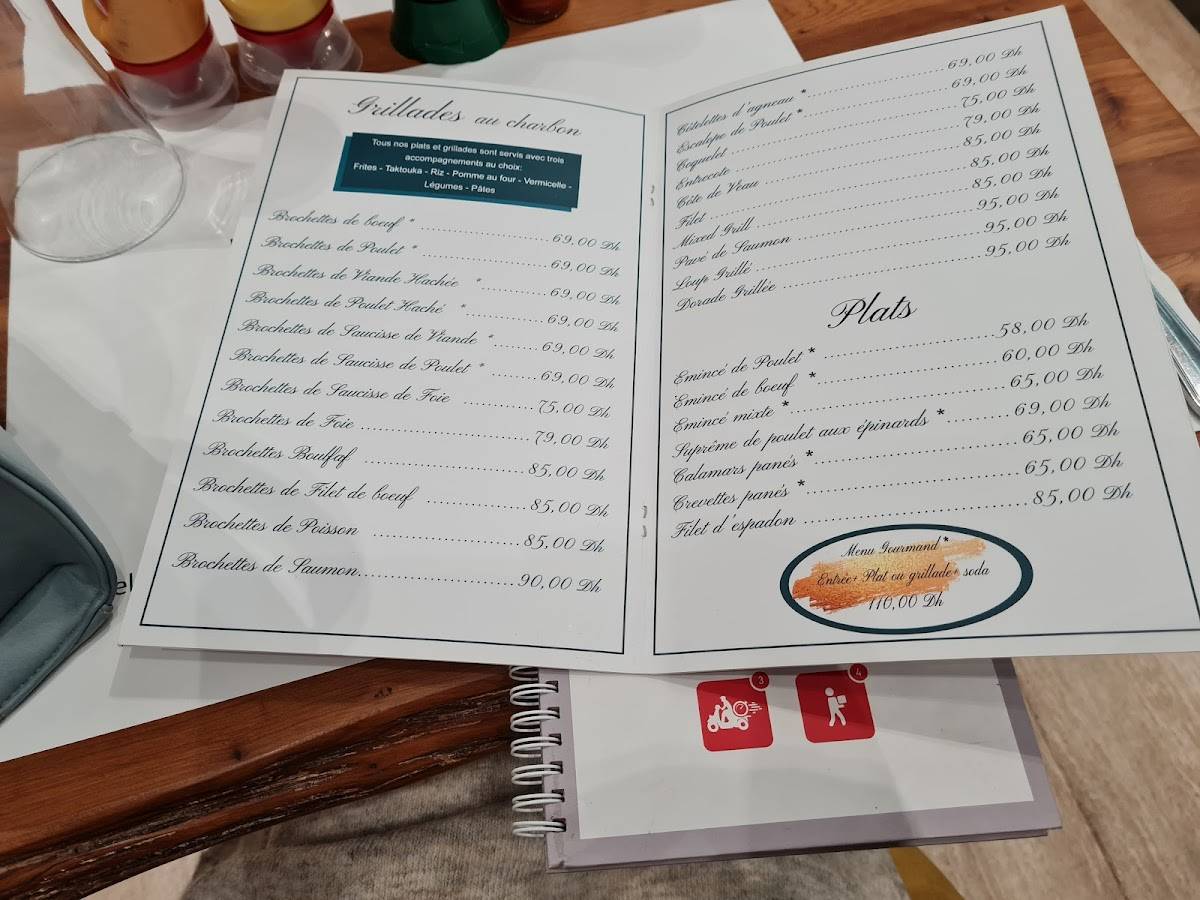 Grillades au charbon
Tous nos plats et grillades sont servis avec trois
accompagnements au choix:
Frites - Taktouka - Riz - Pomme au four - Vermicelle -
Légumes - Pâtes
Brochettes de boeuf * ........ 69,00 Dh
Brochettes de Poulet * ........ 69,00 Dh
Brochettes de Viande Hachée * ........ 69,00 Dh
Brochettes de Poulet Haché * ........ 69,00 Dh
Brochettes de Saucisse de Viande * ........ 69,00 Dh
Brochettes de Saucisse de Poulet * ........ 69,00 Dh
Brochettes de Saucisse de Foie ........ 75,00 Dh
Brochettes de Foie ........ 79,00 Dh
Brochettes Boulfaf ........ 85,00 Dh
Brochettes de Filet de boeuf ........ 85,00 Dh
Brochettes de Poisson ........ 85,00 Dh
Brochettes de Saumon ........ 90,00 Dh
Côtelettes d'agneau * ........ 69,00 Dh
Escalope de Poulet * ........ 69,00 Dh
Coquelet ........ 75,00 Dh
Entrecote ........ 79,00 Dh
Côte de Veau ........ 85,00 Dh
Filet ........ 85,00 Dh
Mixed Grill ........ 85,00 Dh
Pavé de Saumon ........ 95,00 Dh
Loup Grillé ........ 95,00 Dh
Dorade Grillée ........ 95,00 Dh
Plats
Emincé de Poulet * ........ 58,00 Dh
Emincé de boeuf * ........ 60,00 Dh
Emincé mixte * ........ 65,00 Dh
Suprême de poulet aux épinards * ........ 69,00 Dh
Calamars panés * ........ 65,00 Dh
Crevettes panés * ........ 65,00 Dh
Filet d'espadon ........ 85,00 Dh
Menu Gourmand *
Entrée+ Plat ou grillade+ soda
116,00 Dh
3
4
el